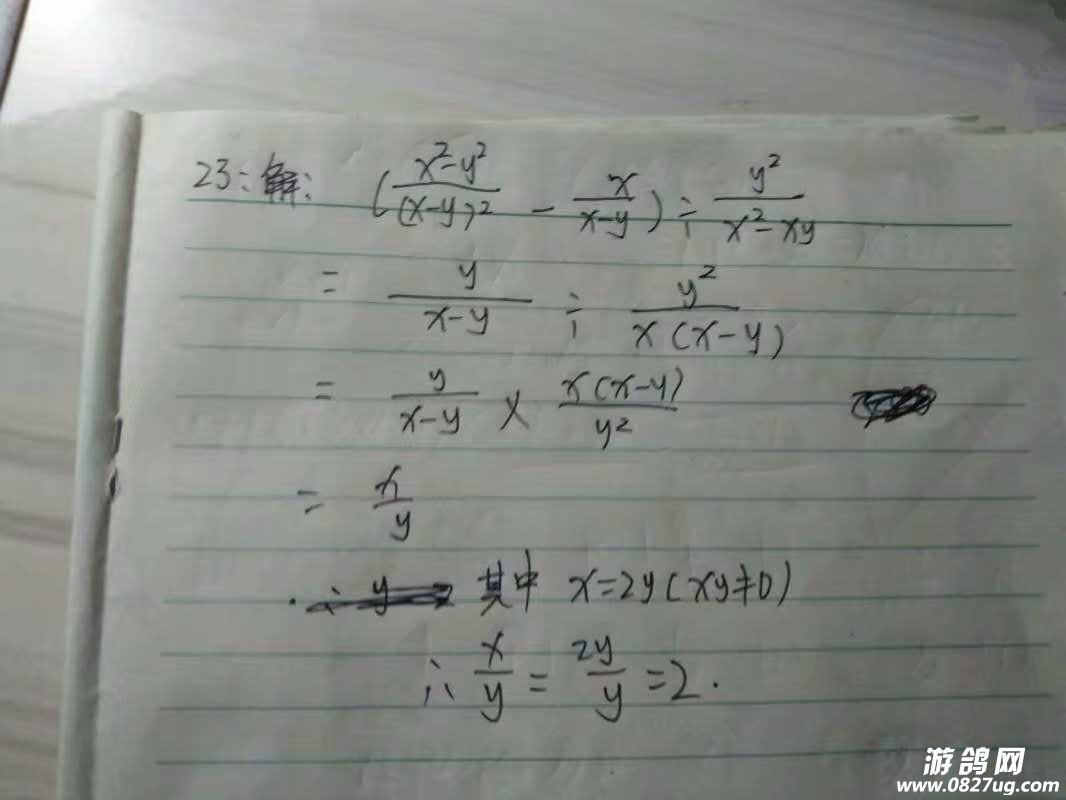 23:解: (x²-y²/(x-y)² - x/x-y) ÷ y²/x²-xy
= y/x-y ÷ y²/x(x-y)
= y/x-y × x(x-y)/y²
= x/y
其中 x=2y(xy≠0)
∴ x/y = 2y/y = 2.
游鸽网
www.0827ug.com